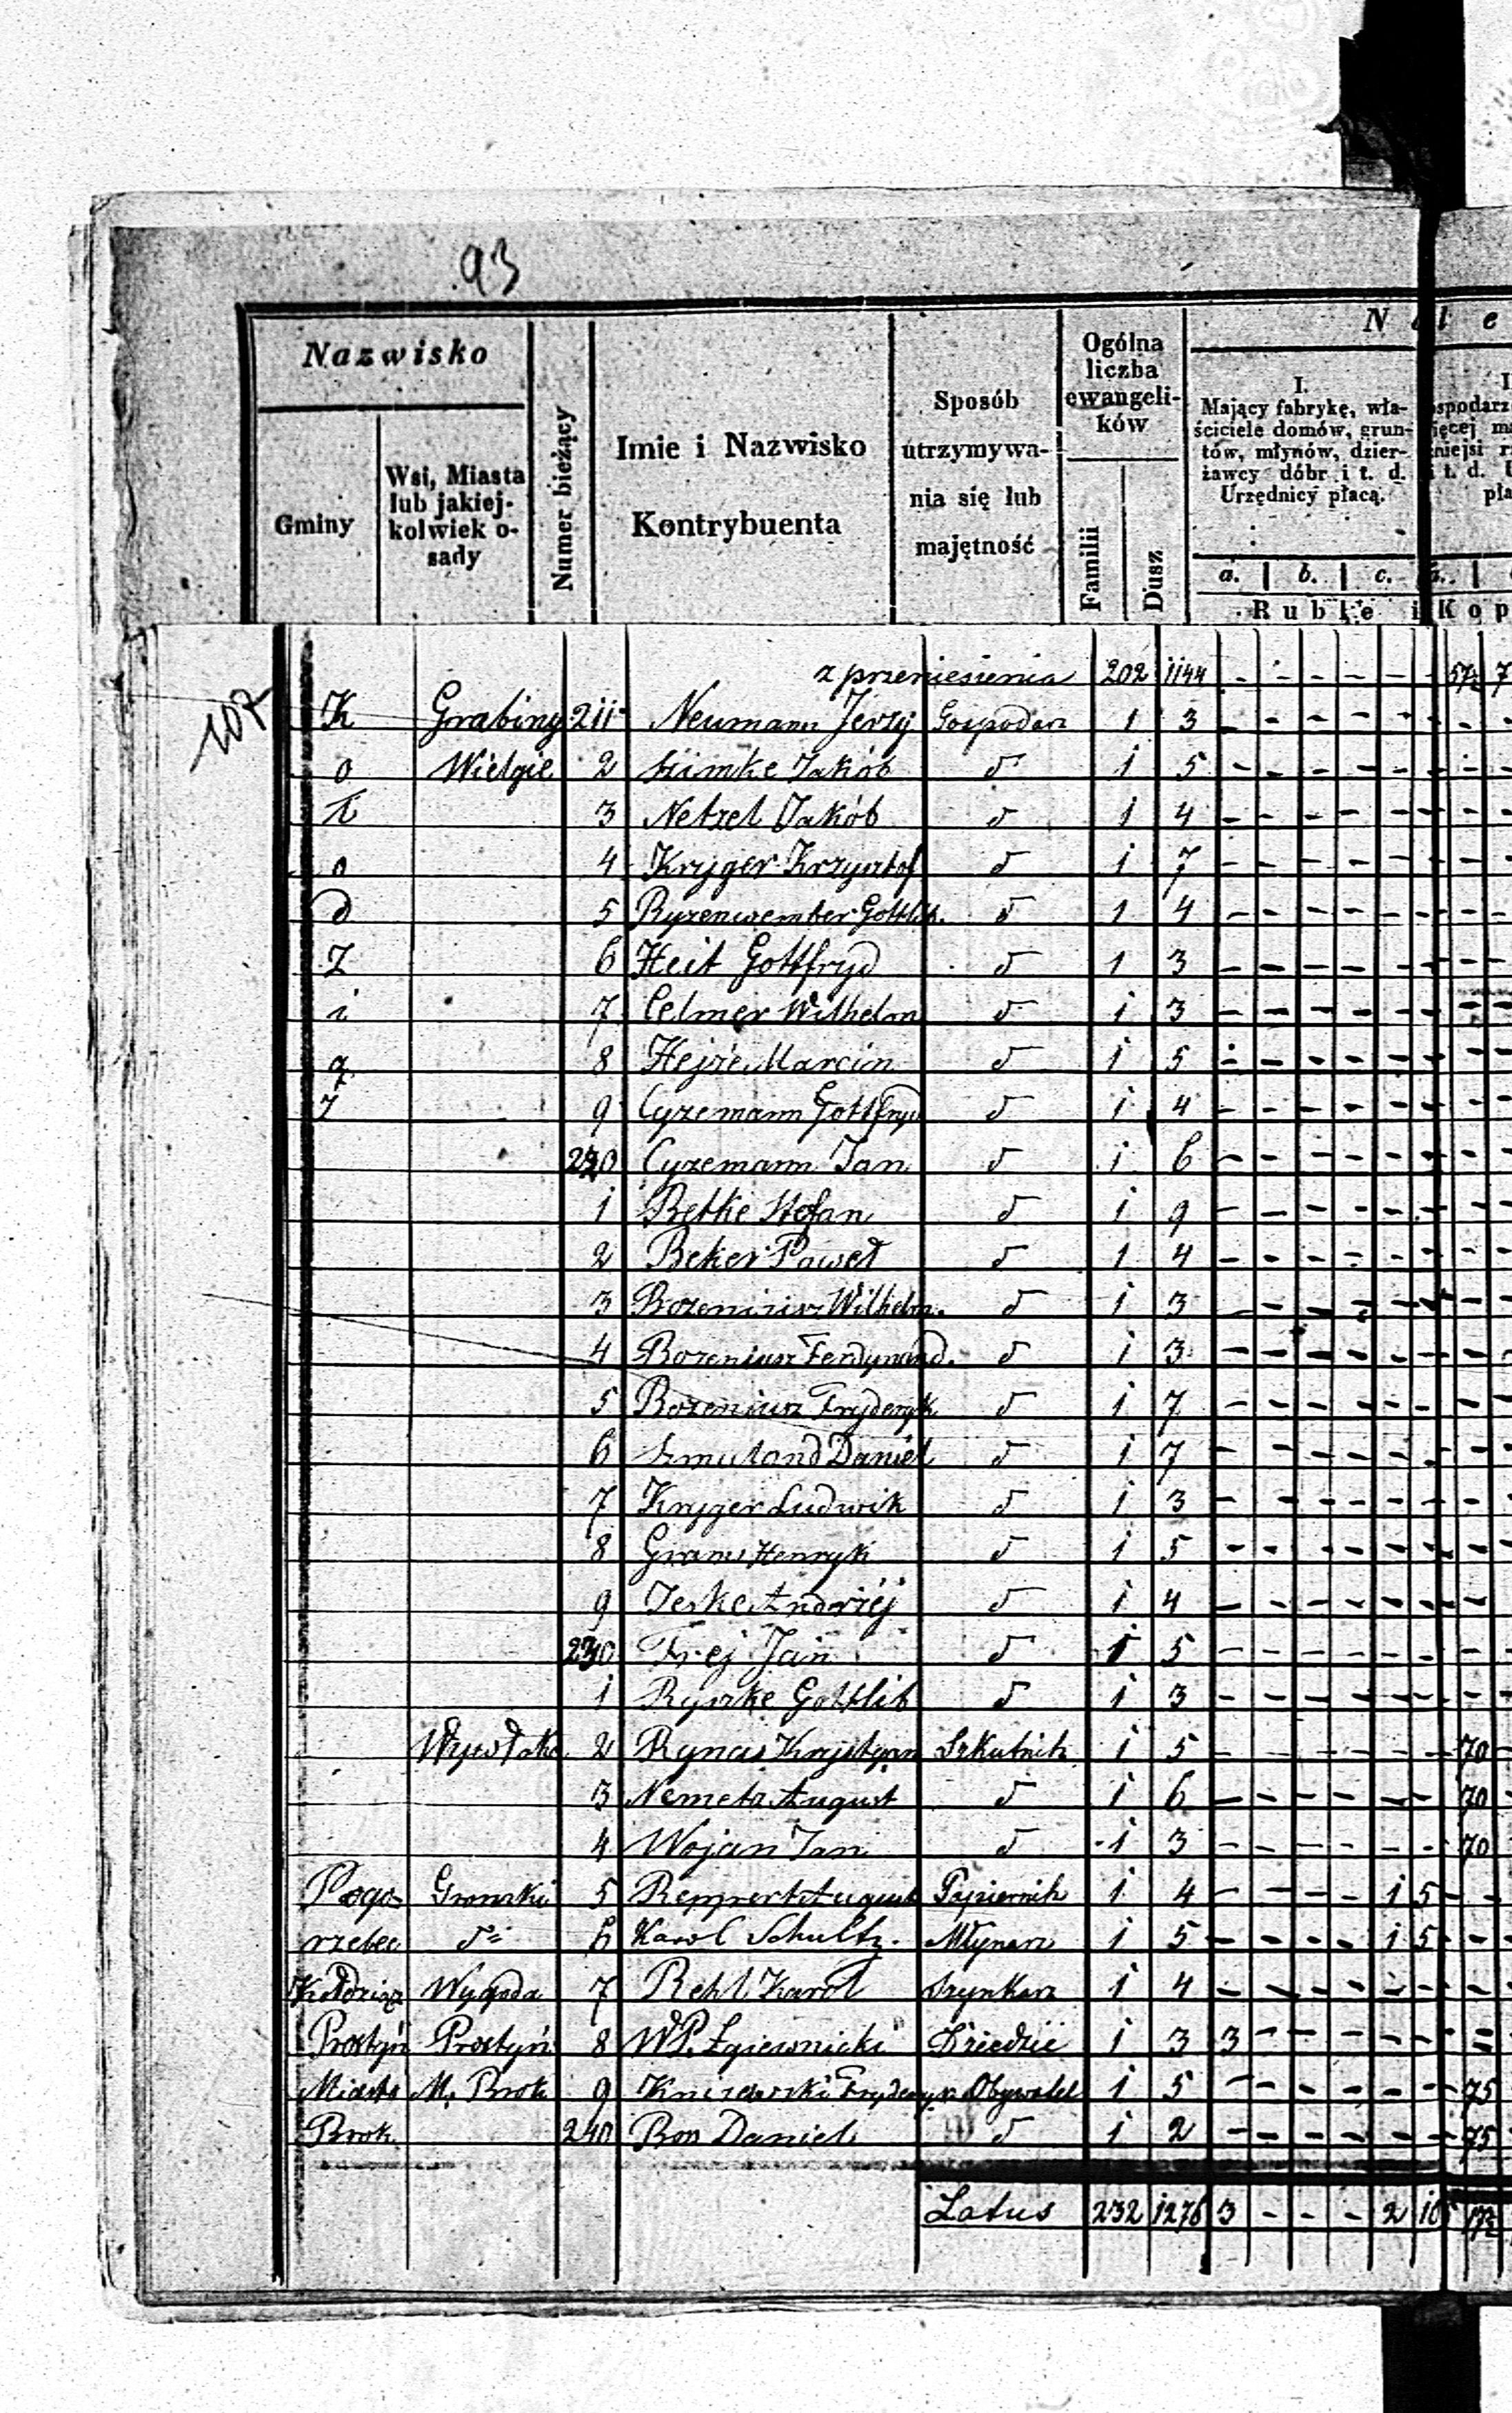 93
107
Nazwisko
Gminy
Wsi, Miasta lub jakiej-kolwiek o-sady
Numer bieżący
Imie i Nazwisko Kontrybuenta
Sposób utrzymywa-nia się lub majętność
Ogólna liczba ewangeli-ków
Familii
Dusz
I. Mający fabrykę, wła-ściciele domów, grun-tów, młynów, dzier-żawcy dóbr i t. d. Urzędnicy płacą.
a. b. c.
Ruble i Kop
z przeniesienia 202 1144 - - - - - -
K Grabiny 211 Neumann Jerzy Gospodarz 1 3 - - - - - -
o Wielgie 2 Szimke Jakób d 1 5 - - - - - -
ł 3 Netzel Jakób d 1 4 - - - - - -
o 4 Kryger Krzysztof d 1 7 - - - - - -
d 5 Ryzenwember Gottlib. d 1 4 - - - - - -
Z 6 Heit Gottfryd d 1 3 - - - - - -
i 7 Celmer Wilhelm d 1 3 - - - - - -
ą 8 Hejze Marcin d 1 5 - - - - - -
ż 9 Cyzemann Gottfryd d 1 4 - - - - - -
220 Cyzemann Jan d 1 6 - - - - - -
1 Betke Stefan d 1 9 - - - - - -
2 Beker Paweł d 1 4 - - - - - -
3 Bozeniusz Wilhelm. d 1 3 - - - - - -
4 Bozeniusz Ferdynand. d 1 3 - - - - - -
5 Bozeniusz Fryderyk d 1 7 - - - - - -
6 Szmuland Daniel d 1 7 - - - - - -
7 Kryger Ludwik d 1 3 - - - - - -
8 Grams Henryk d 1 5 - - - - - -
9 Jeske Andrzéj d 1 4 - - - - - -
230 Frej Jan d 1 5 - - - - - -
1 Ryszke Gottlib d 1 3 - - - - - -
2 Szkutnik 1 5 - - - - - - 70
3 August d 1 6 - - - - - - 70
4 Wojan Jan d 1 3 - - - - - - 70
Pogo- Gronzki 5 August Papiernik 1 4 - - - - 1 5 -
rzelec do 6 Karol Schultz. Młynarz 1 5 - - - - 1 5 -
Wygoda 7 Karol Szynkarz 1 4 - - - - - -
Prostyń Prostyń 8 WP. Łgiewnicki Dziedzic 1 3 3 - - - - -
Miasto M. Brok 9 Fryderyk Obywatel 1 5 - - - - - - 75
Brok 240 Bon Daniel d 1 2 - - - - - - 75
Latus 232 1276 3 - - - 2 10